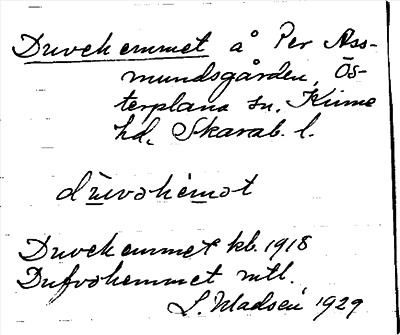 Duvehemmet å Per Ass-
mundsgården, Ös-
terplana sn. Kinne
hd. Skarab. l.
dūvəhemət
Duvehemmet kb. 1918
Dufvohemmet mtl.
L. Madsén, 1929